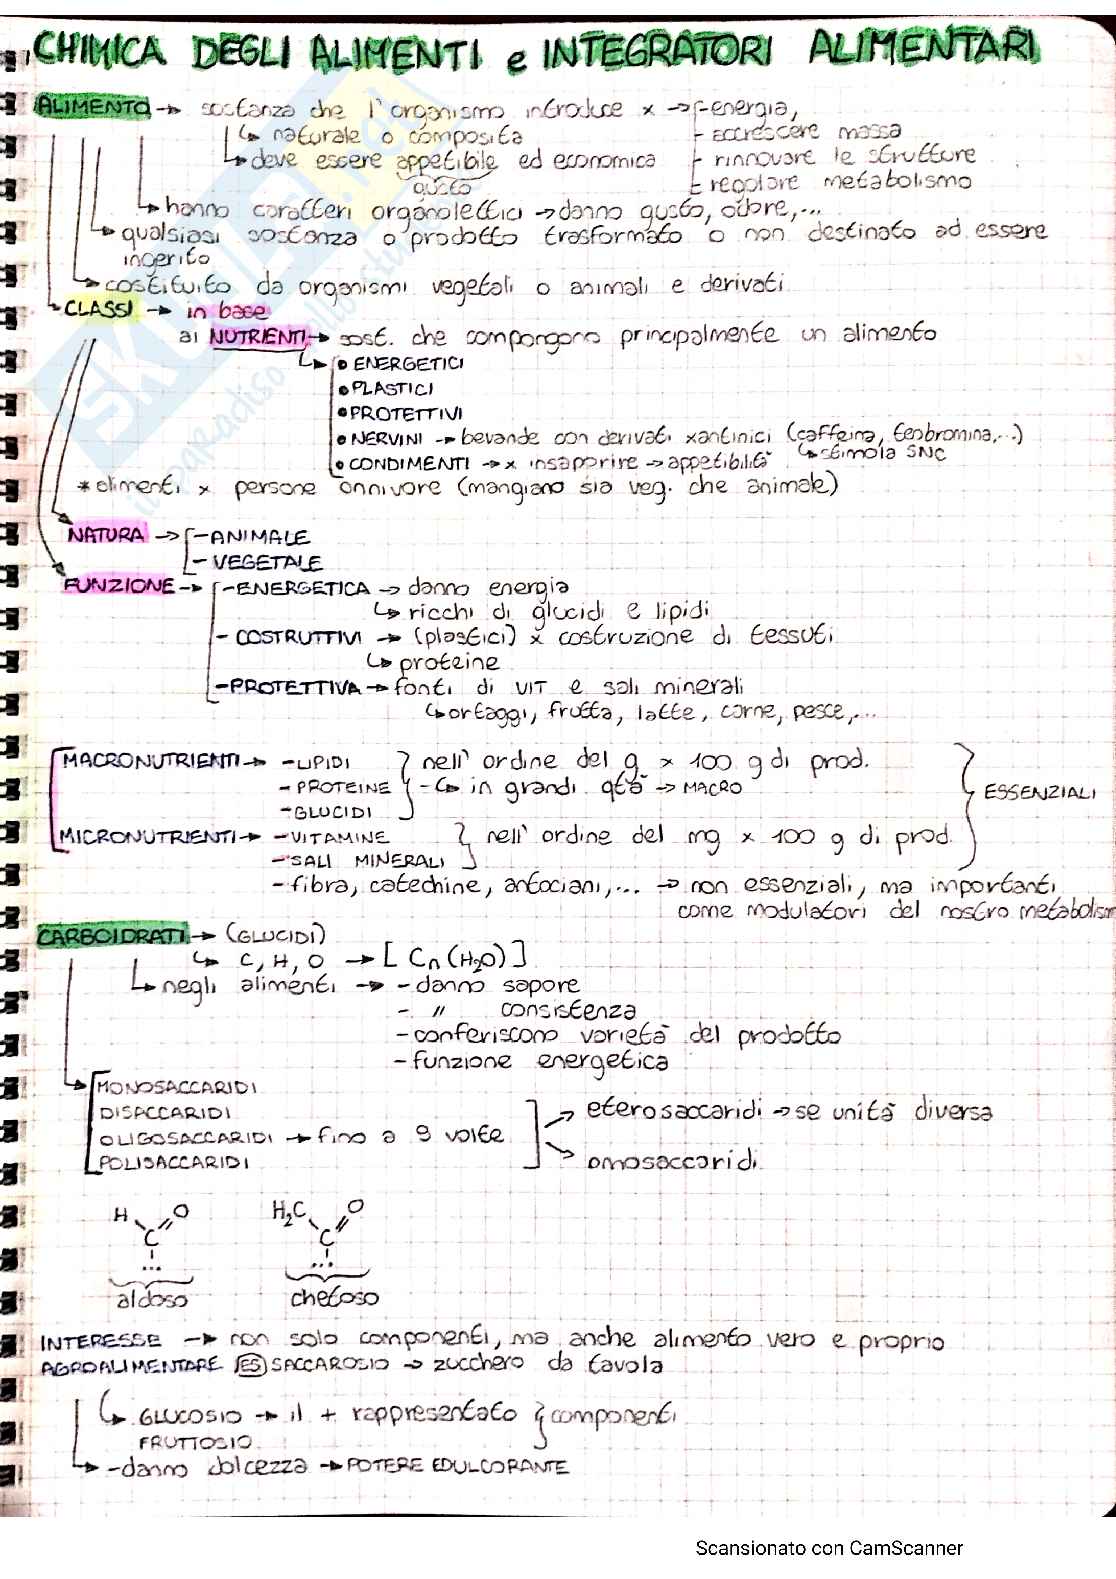 CHIMICA DEGLI ALIMENTI e INTEGRATORI ALIMENTARI
ALIMENTO → sostanza che l'organismo introduce x → - energia,
↳ naturale o composita - accrescere massa
↳ deve essere appetibile ed economica - rinnovare le strutture
gusto - regolare metabolismo
↳ hanno caratteri organolettici → danno gusto, odore,...
↳ qualsiasi sostanza o prodotto trasformato o non destinato ad essere
ingerito
↳ costituito da organismi vegetali o animali e derivati
↳ CLASSI → in base
ai NUTRIENTI → sost. che compongono principalmente un alimento
↳ • ENERGETICI
• PLASTICI
• PROTETTIVI
• NERVINI → bevande con derivati xantinici (caffeina, teobromina,...)
↳ stimola SNC
• CONDIMENTI → x insaporire → appetibilità
* alimenti x persone onnivore (mangiano sia veg. che animale)
NATURA → - ANIMALE
- VEGETALE
FUNZIONE → - ENERGETICA → danno energia
↳ ricchi di glucidi e lipidi
- COSTRUTTIVI → (plastici) x costruzione di tessuti
↳ proteine
- PROTETTIVA → fonti di VIT e sali minerali
↳ ortaggi, frutta, latte, carne, pesce,...
MACRONUTRIENTI → - LIPIDI } nell'ordine del g x 100 g di prod.
- PROTEINE - ↳ in grandi qtà → MACRO
- GLUCIDI
ESSENZIALI
MICRONUTRIENTI → - VITAMINE } nell'ordine del mg x 100 g di prod.
- SALI MINERALI
- fibra, catechine, antociani,... → non essenziali, ma importanti
come modulatori del nostro metabolism
CARBOIDRATI → (GLUCIDI)
↳ C, H, O → [ Cn (H2O) ]
↳ negli alimenti → - danno sapore
- " consistenza
- conferiscono varietà del prodotto
- funzione energetica
↳ MONOSACCARIDI
DISACCARIDI → eterosaccaridi → se unità diversa
OLIGOSACCARIDI → fino a 9 volte
POLISACCARIDI → omosaccaridi
H O H2C O
C C
... ...
aldoso chetoso
INTERESSE → non solo componenti, ma anche alimento vero e proprio
AGROALIMENTARE ES SACCAROSIO → zucchero da tavola
↳ GLUCOSIO → il + rappresentato } componenti
FRUTTOSIO
↳ - danno dolcezza → POTERE EDULCORANTE
Scansionato con CamScanner